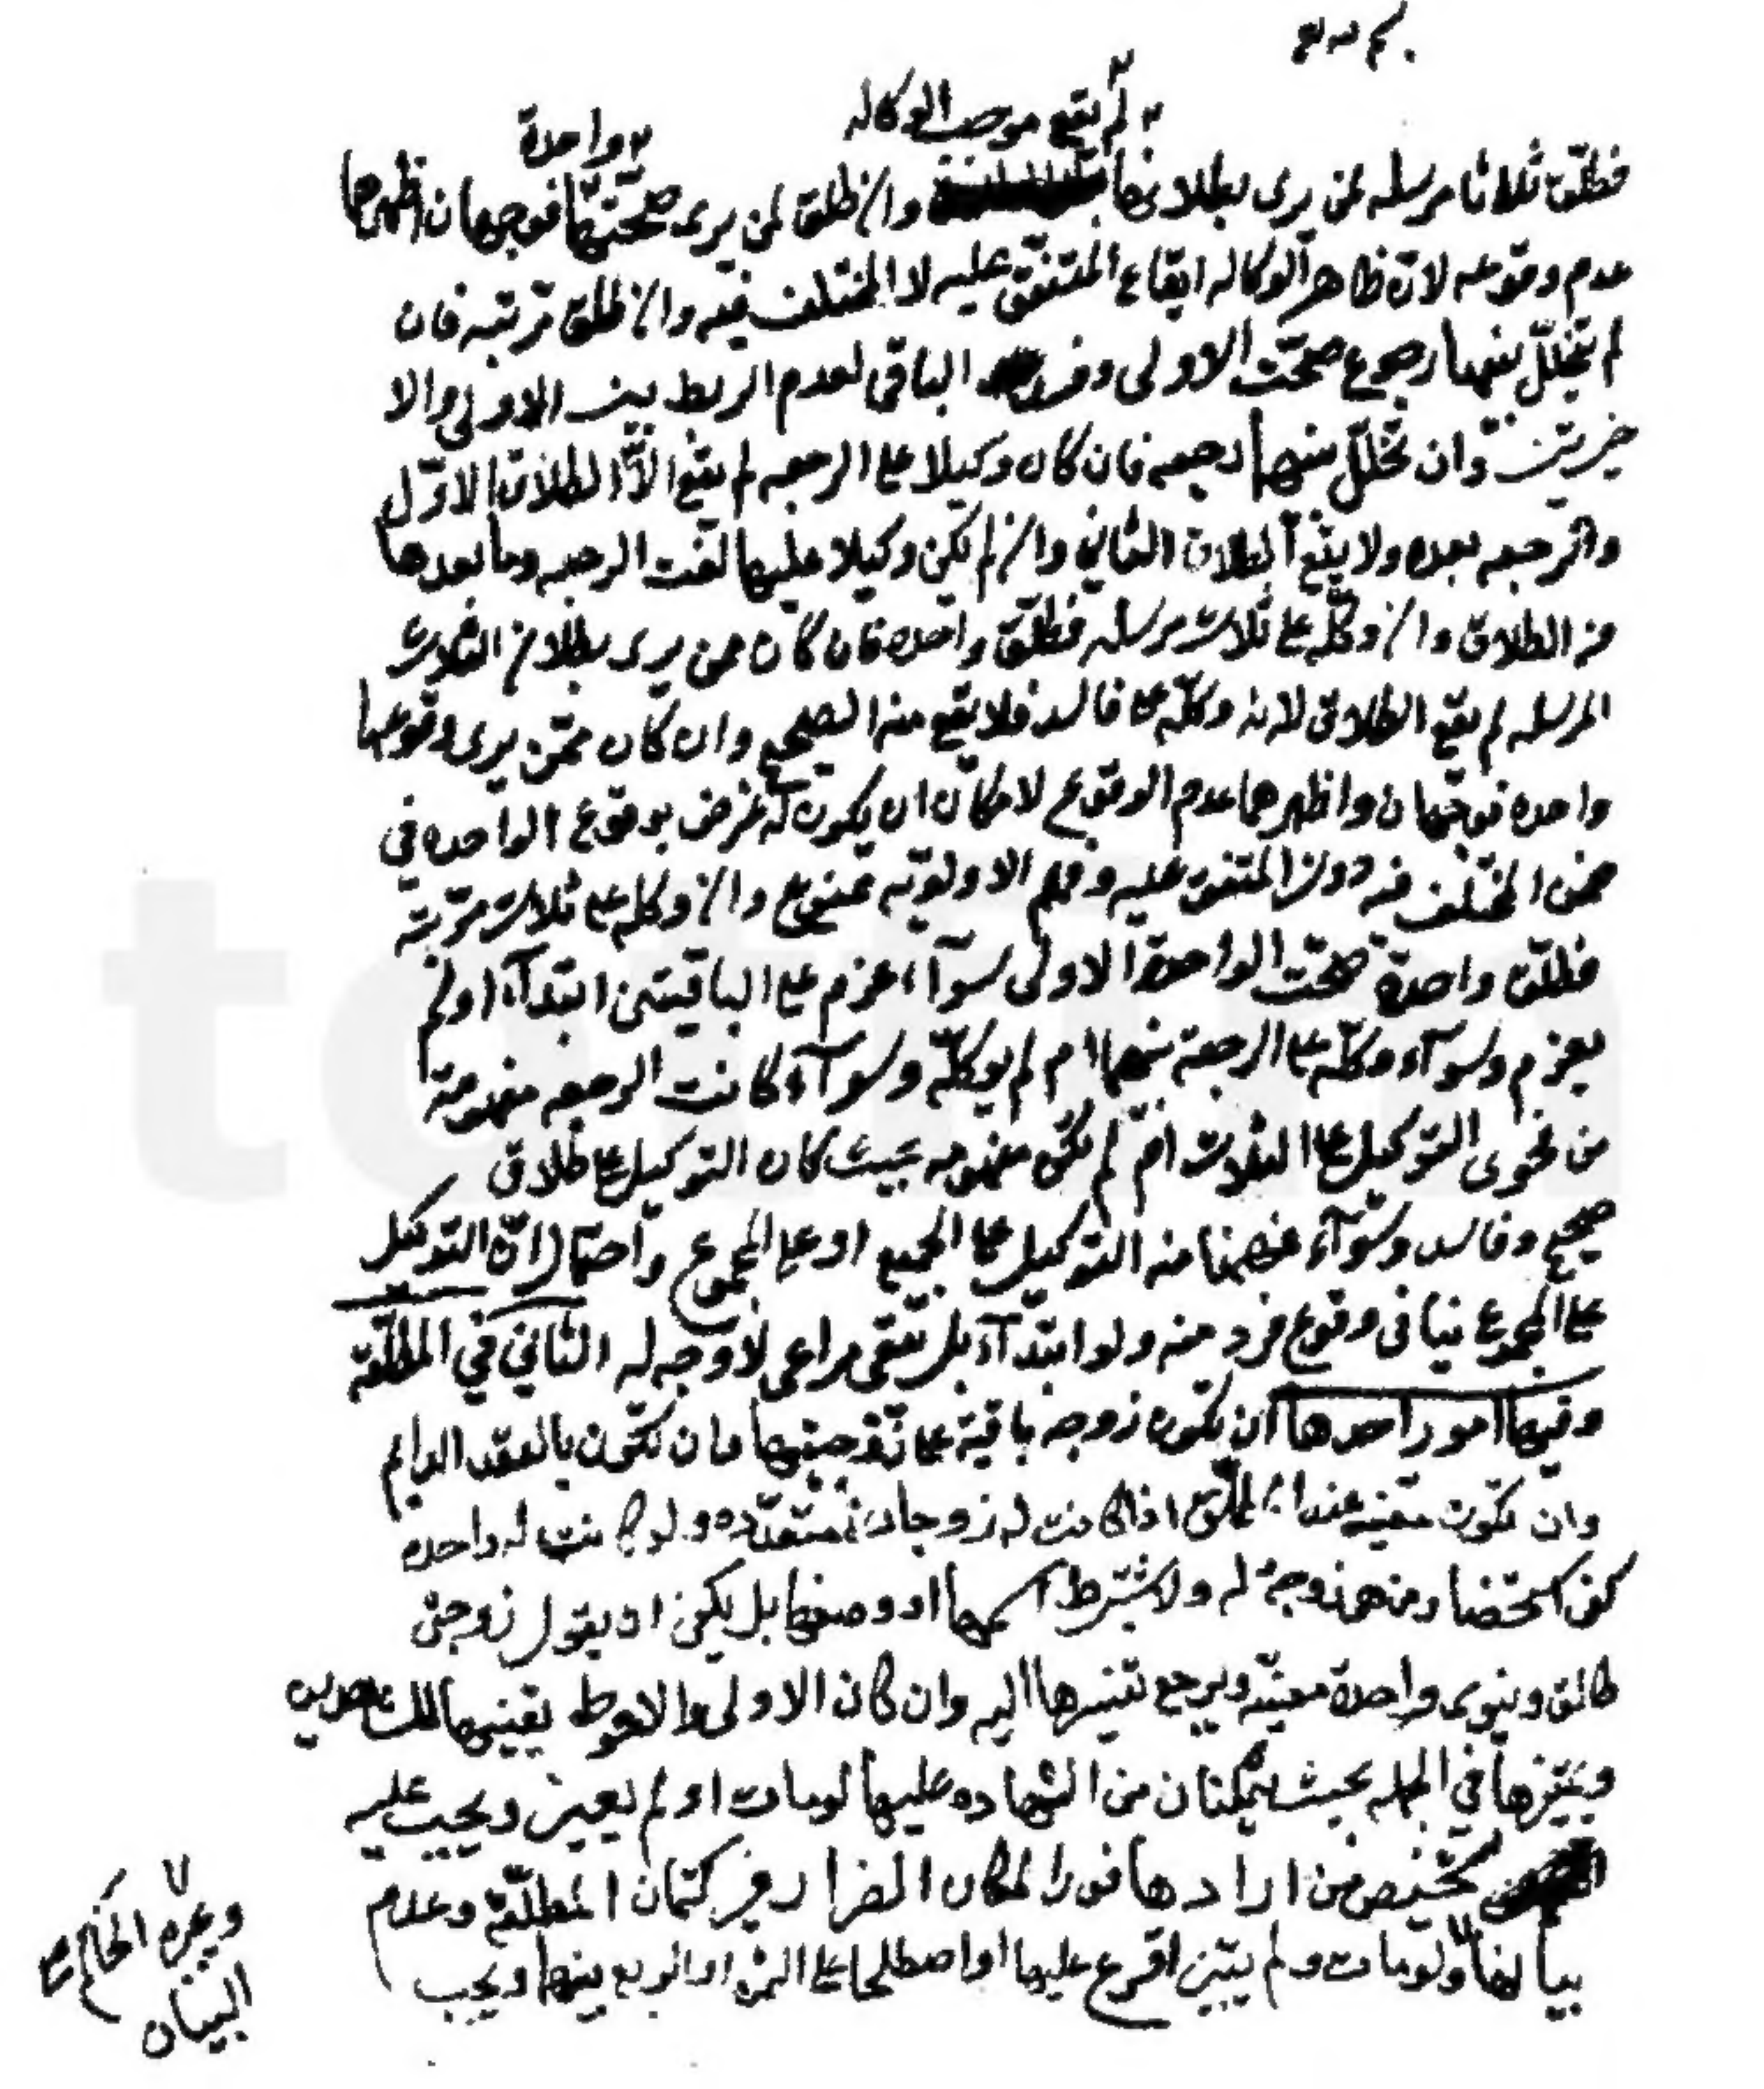 لم يقع موجب الوكاله
واحدة
فطلّق ثلاثا مرسله لمن يرى بطلانها وان طلق لمن يرى صحّتها فوجهان اظهرها
عدم وقوعه لانّ ظاهر الوكاله ايقاع المتفق عليه لا المختلف فيه وان طلق مرتبه فان
لم يتخلّل بينهما رجوع صحّت الاولى وفسد الباقى لعدم الربط بين الاولى والا
خيرتين وان تخلّل بينهما رجعه فان كان وكيلا على الرجعه لم يقع الّا الطلاق الاوّل
والرجعه بعده ولا يقع الطلاق الثاني وان لم يكن وكيلا عليها لغت الرجعه وما بعدها
من الطلاق وان وكّله على ثلاث مرسله فطلّق واحده فان كان ممن يرى بطلان الثلاث
المرسله لم يقع الطلاق لانه وكّله على فاسد فلا يقع منه الصحيح وان كان ممّن يرى وقوعها
واحده فوجهان واظهرهما عدم الوقوع لامكان ان يكون له غرض بوقوع الواحده في
ضمن المختلف فيه دون المتفق عليه وفهم الاولويّه ممنوع وان وكله على ثلاث مرتبة
فطلّق واحدة صحّت الواحدة الاولى سوآء عزم على الباقيتين ابتدآء او لم
يعزم وسوآء وكّله على الرجعة بينهما ام لم يوكلّه وسوآء كانت الرجعه مفهومة
من فحوى التوكيل على الثلاث ام لم تكن مفهومه بحيث كان التوكيل على طلاق
صحيح وفاسد وسوآء فهمنا منه التوكيل على الجميع او على المجموع واحتمال انّ التوكيل
على المجموع ينافى وقوع فرد منه ولو ابتدآء بل يبقى مراعى لا وجه له الثاني في المطلّقة
وفيها امور احدها ان تكون زوجه باقية على زوجيتها وان تكون بالعقد الدايم
وان تكون معينه عند المطلّق اذا كانت له زوجات متعدّده ولو كانت له واحده
كفى استحضار من هى زوجة له ولا يشترط اسمها او وصفها بل يكفي ان يقول زوجتى
طالق وينوى واحدة معيّنه ويرجع تفسيرها اليه وان كان الاولى والاحوط تعيينها للشاهدين
وتميّزها في الجمله بحيث يتمكنان من الشهاده عليها لو مات او لم يعين ويجب عليه
تشخيص من ارادها فورا لمكان الضرار في كتمان المطلّقة وعدم
بيانها ولو مات ولم يبيّن اقرع عليها او اصطلحا على الثمن او الربع بينهما ويجب
ويجبره الحاكم على
البيان